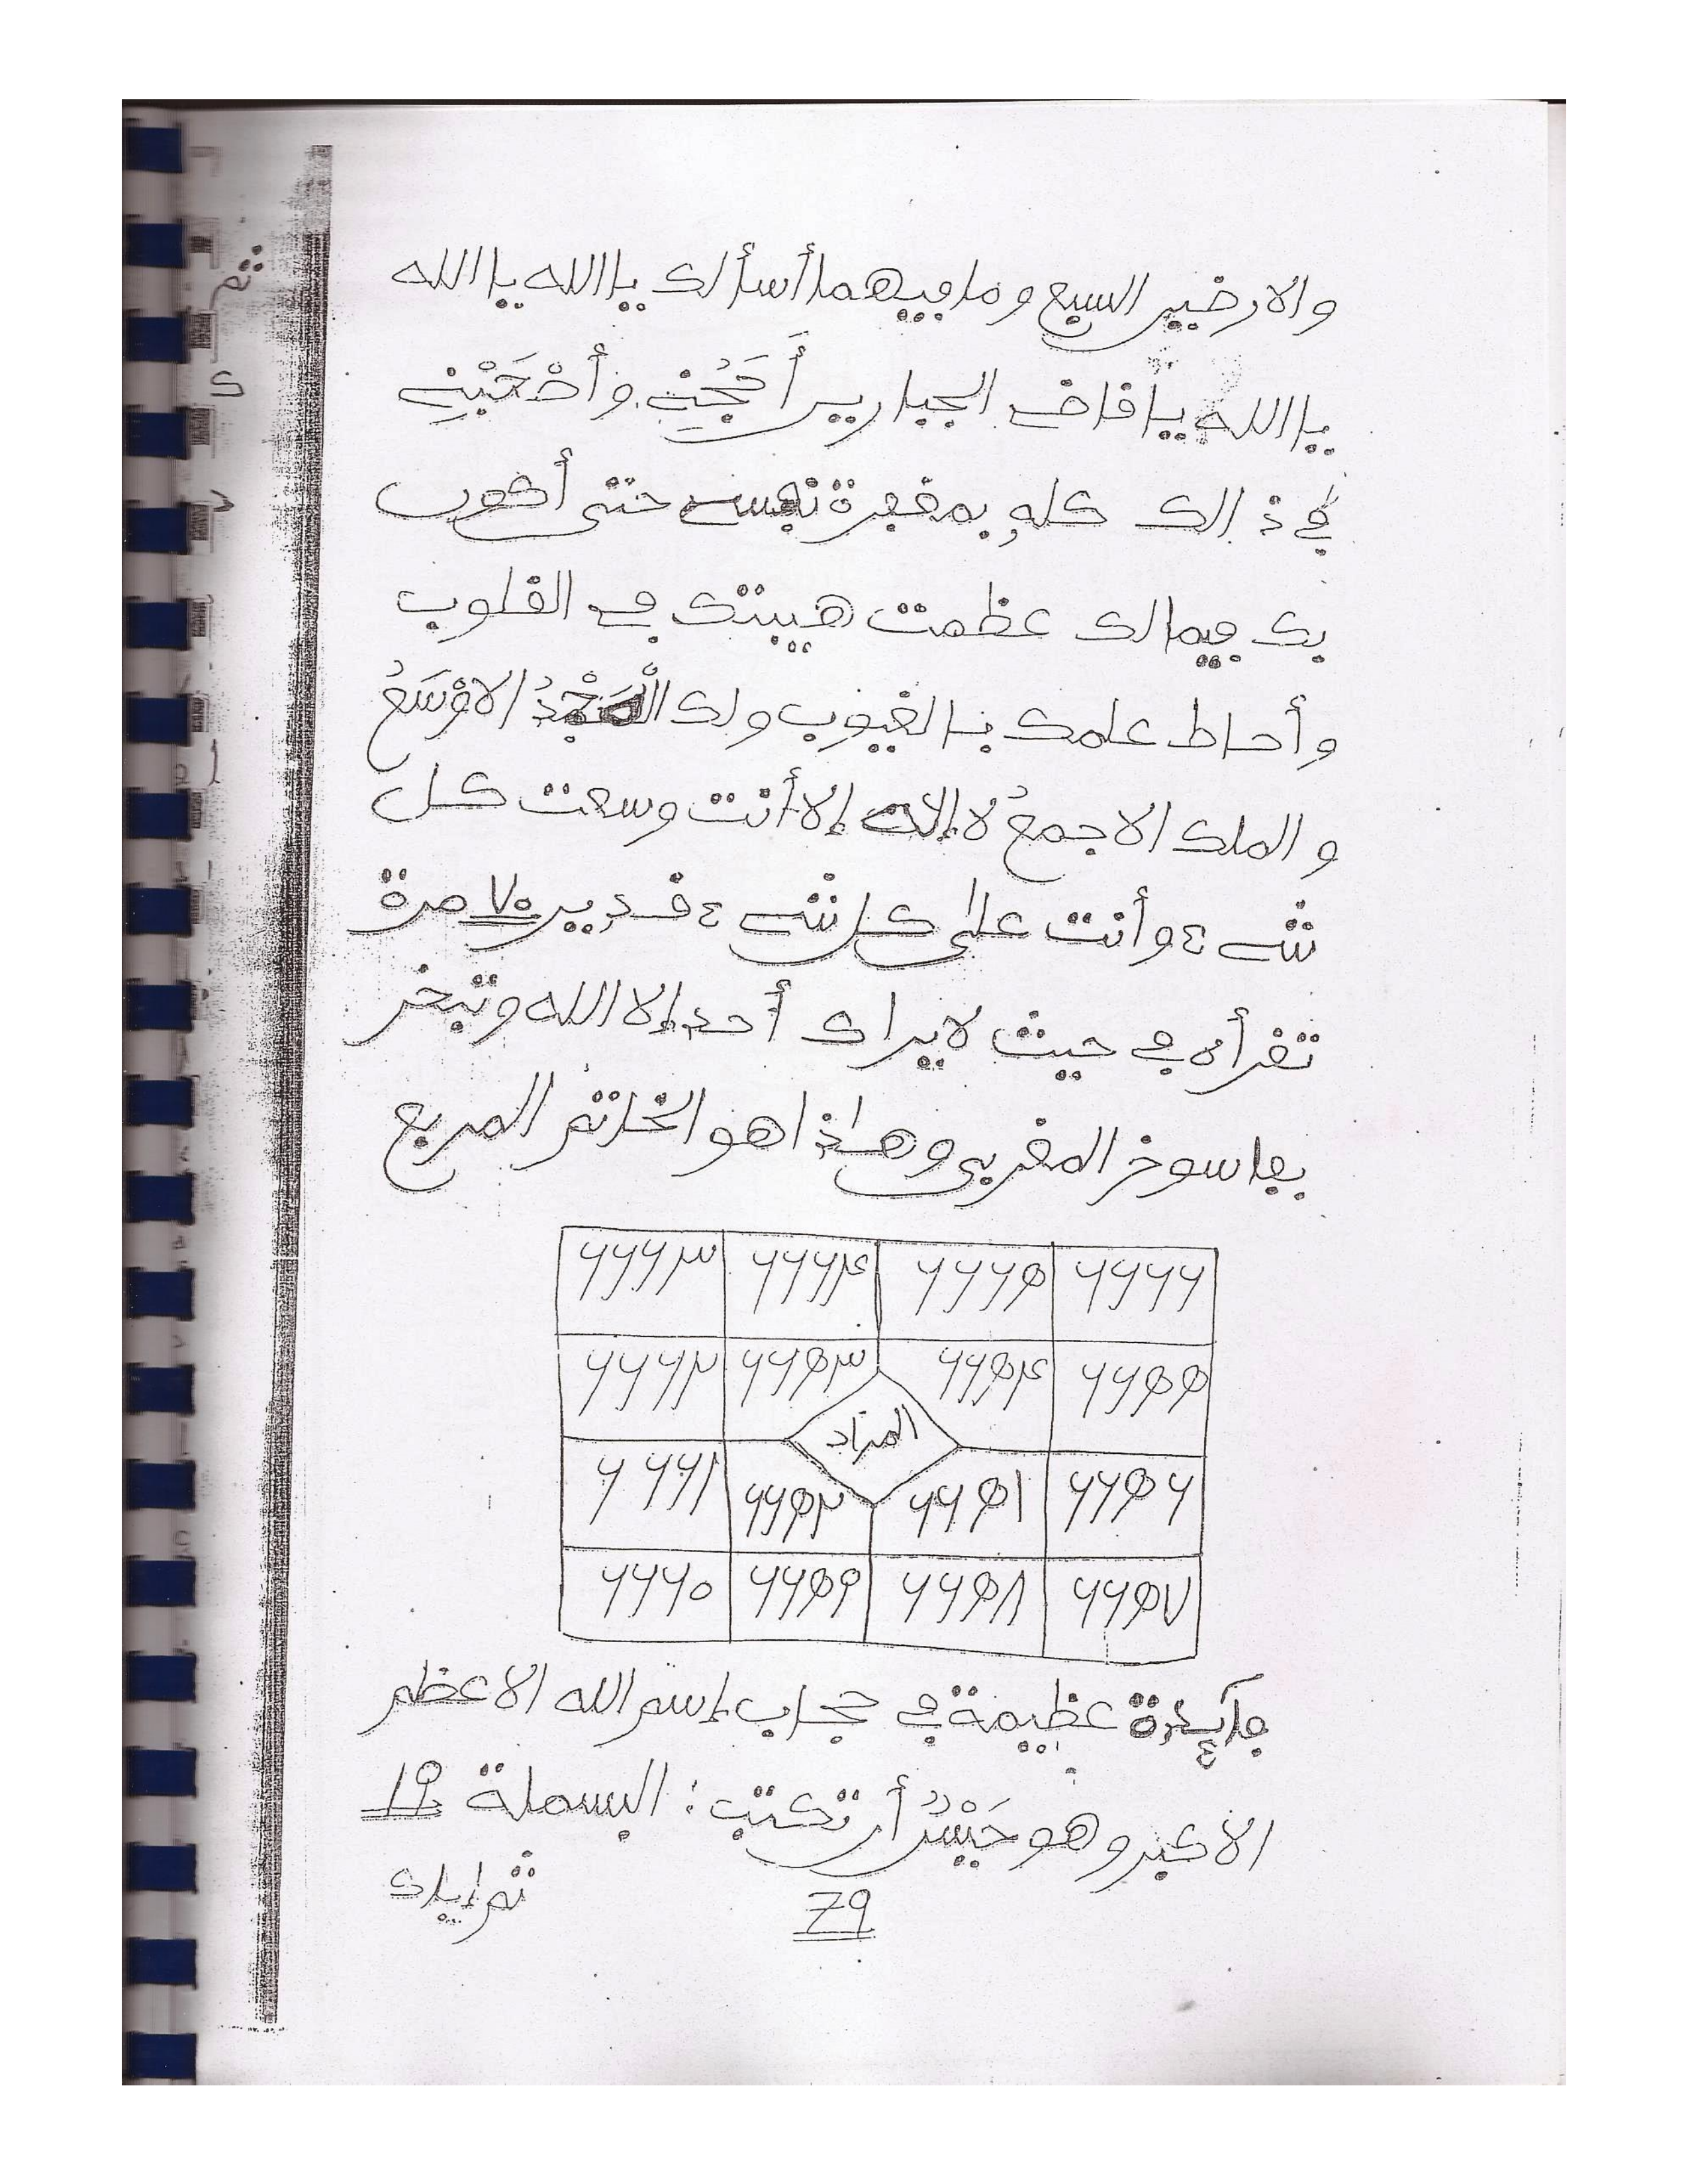 والارضين السبع وما فيهما أسألك يا الله يا الله
يا الله يا قاف الجبارين أَحْجُبْنِي وأَصْحَبْنِي
في ذالك كله بمغفرة حتى أكون
بك فيما لك عظمت هيبتك في القلوب
وأحاط علمك بالغيوب ولك الْمَجْدُ الاوْسَعُ
والملك الاجمعُ لا إلاه إلا أنت وسعت كل
شيء وأنت على كل شيء قدير ٧٠ مرة
تقرأه في حيث لا يراك أحد إلا الله وتبخر
بفاسوخ المغربي وهاذا هو الخاتم المربع
٦٦٦٣ ٦٦٦۴ ٦٦٦٥ ٦٦٦٦
٦٦٦٢ ٦٦٥٣ ٦٦٥۴ ٦٦٥٥
المراد
٦٦٦١ ٦٦٥٢ ٦٦٥١ ٦٦٥٦
٦٦٦٠ ٦٦٥٩ ٦٦٥٨ ٦٦٥٧
فائدة عظيمة في حجاب إسم الله الاعظم
الأكبر وهو أن تكتب: البسملة ١٩
ثم إياك
79